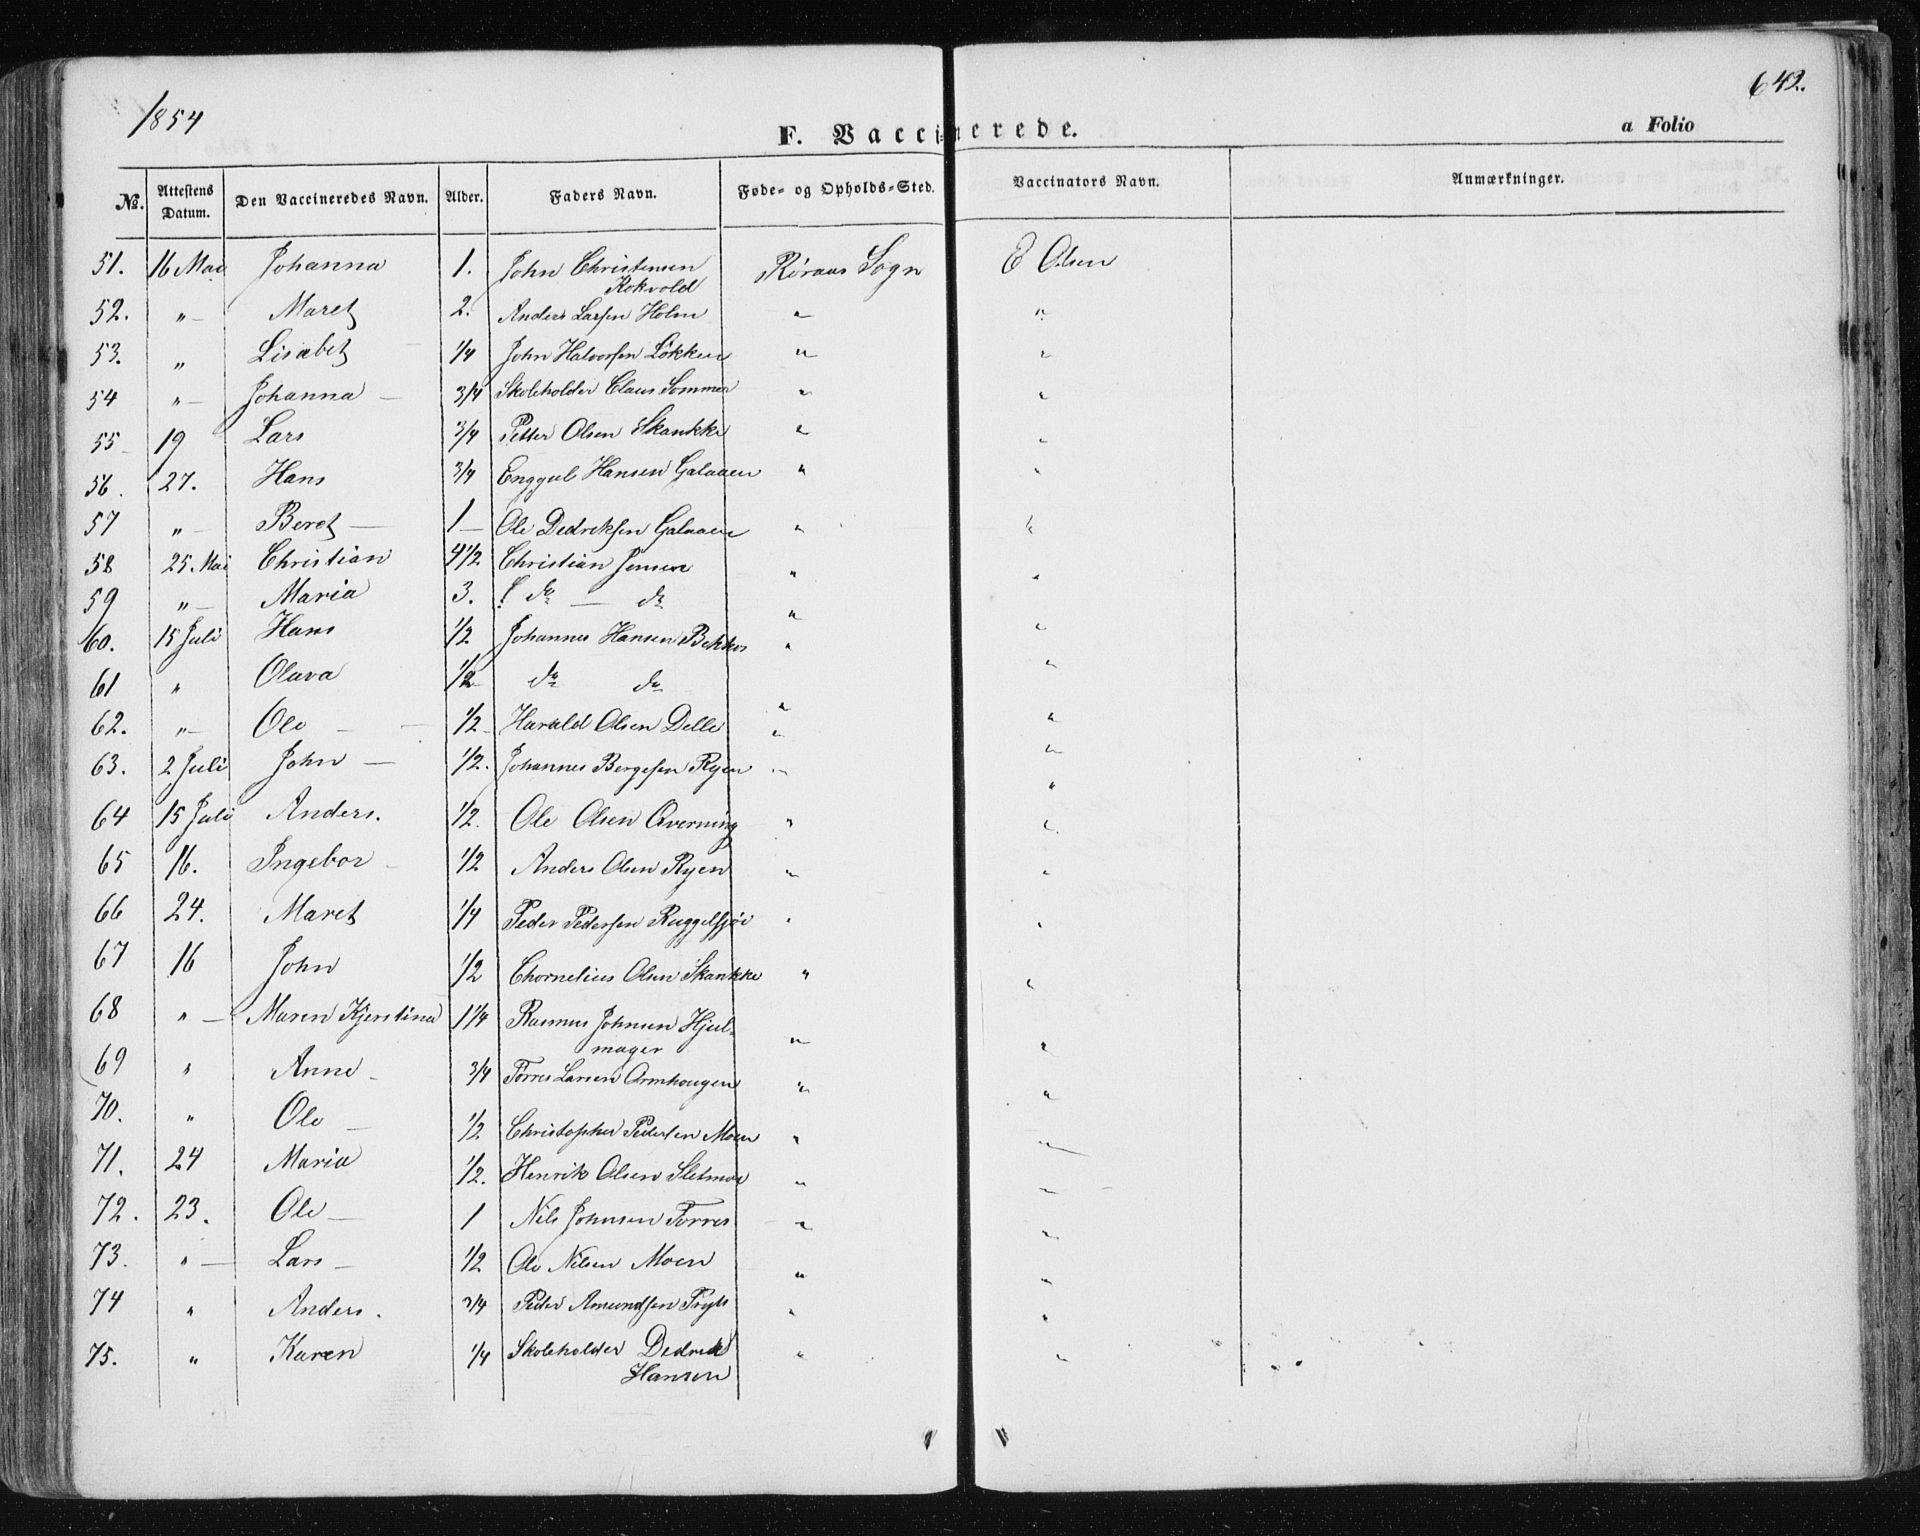 1854
642.
F. Vaccinerede.
a Folio
No. Attestens Datum. Den Vaccineredes Navn. Alder. Faders Navn. Føde- og Opholds-Sted. Vaccinators Navn. Anmærkninger.
51. 16 Mai Johanna 1. John Christensen Røraas Sogn E Olsen
Kokvold
52. „ — Maret 2. Anders Larsen Holm „ „
53. „ Lisabet — 1/4 John Halvorsen Løkken „ „
54 „ — Johanna — 3/4 Skoleholder Claus Sommer „ „
55 19 Lars 3/4 Petter Olsen Skankke „ „
56. 27. Hans 3/4 Enggul Hansen Galaaen „ „
57 „ — Beret — 1 — Ole Dedreksen Galaaen „ „
58 25. Mai Christian 4 1/2 Christian Jensen „ „
59 „ — Maria 3. do — do „
60. 15 Juli Hans 1/2 Johannes Hansen Bekkos „ „
61 „ Olava 1/2 do do „ „
62. „ — Ole — 1/2 Harald Olsen Delle „ „
63. 2 Juli John — 1/2. Johannes Bergesen Ryen „ „
64 15 Juli Anders. 1/2. Ole Olsen Qverning „ „
65 16. Ingebor — 1/2 Anders Olsen Ryen „ „
66 24. Maret 1/4 Peder Pedersen Ruggelsjøe „ „
67 16 John 1/2 Chornelius Olsen Skankke „ „
68 „ — Maren Kjerstina 1 1/4 Rasmus Johnsen Hjul-
mager „ „
69 „ Anne — 3/4 Torres Larsen Ormhaugen „ „
70. „ Ole — 1/2 Christopher Pedersen Moen „ „
71. 24 Maria 1/2. Henrik Olsen Sletmoe „ „
72. 23. Ole — 1 Nils Johnsen Torres „ „
73. „ — Lars — 1/2 Ole Nilsen Moen „ „
74 „ Anders. 3/4 Peder Amundsen Tryts „ „
75. „ Karen 1/4 Skoleholder Dedrek „ „
Hansen